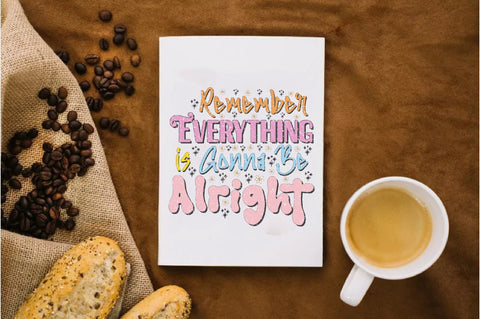 Remember
EVERYTHING
is Gonna Be
Alright